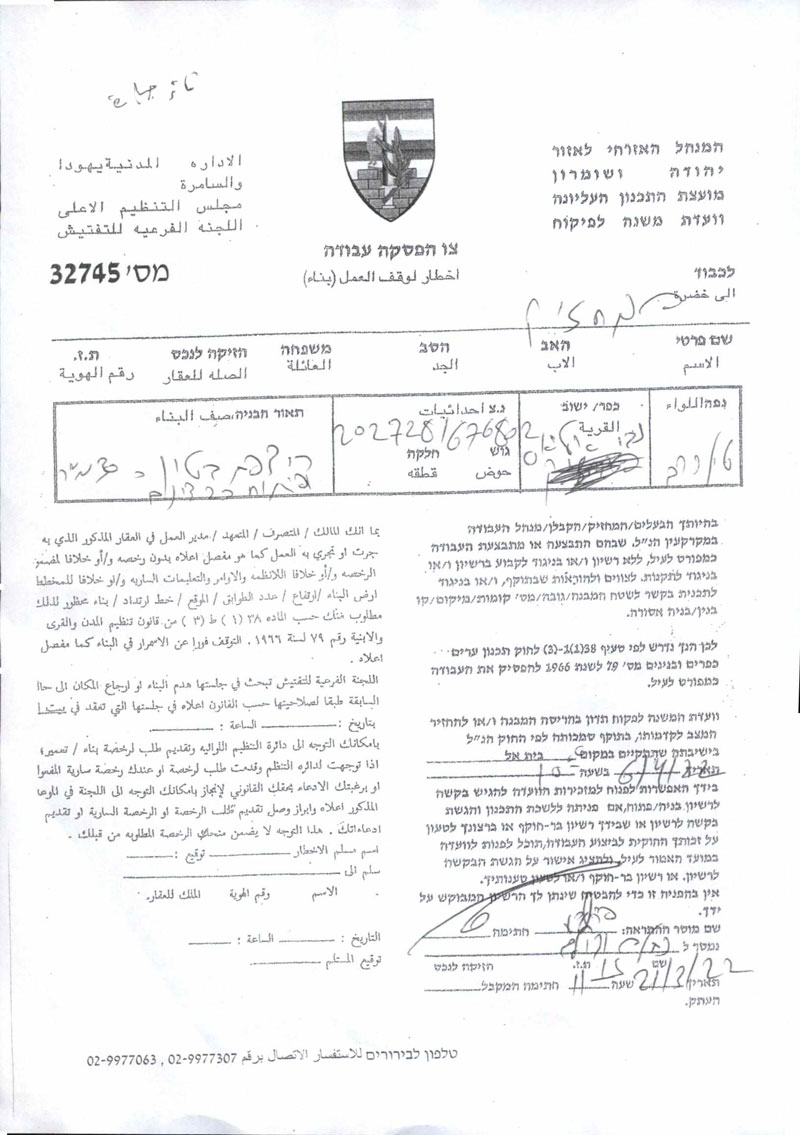 המנהל האזרחי לאזור
יהודה ושומרון
מועצת התכנון העליונה
וועדת משנה לפיקוח
الاداره المدنية يهودا
والسامرة
مجلس التنظيم الاعلى
اللجنه الفرعيه للتفتيش
צו הפסקה עבודה
اخطار لوقف العمل (بناء)
מס' 32745
לכבוד
الى حضرة
מחזיק
שם פרטי האב הסב משפחה חזיקה לנכס ת.ז.
الاسم الاب الجد العائلة الصله للعقار رقم الهوية
נפה/اللواء
כפר/ ישוב
القرية
נ.צ احداثيات
202728/67680
גוש חלקה
حوض قطقه
תאור הבניה/صيف البناء
בהיותך הבעלים/המחזיק/הקבלן/מנהל העבודה
במקרקעין הנ"ל. שבהם התבצעה או מתבצעת העבודה
כמפורט לעיל, ללא רשיון ו/או בניגוד לקבוע ברשיון ו/או
בניגוד לתקנות. לצווים ולהוראות שבתוקף, ו/או בניגוד
לתכנית בקשר לשטח המבנה/גובה/מס' קומות/מיקום/קו
בנין/בניה אסורה.
לכן הנך נדרש לפי סעיף 38(1)-(3) לחוק תכנון ערים
כפרים ובנינים מס' 79 לשנת 1966 להפסיק את העבודה
כמפורט לעיל.
וועדת המשנה לפקוח תדון בהריסת המבנה ו/או להחזיר
המצב לקדמותו, בתוקף סמכותה לפי החוק הנ"ל
בישיבתה שתתקיים במקום בית אל
תאריך 6/4/22 בשעה 10
בידך האפשרות לפנות למזכירות הוועדה להגיש בקשה
לרשיון בניה/פתוח,אם פניתה ללשכת התכנון והגשת
בקשה לרשיון או שבידך רשיון בר-חוקף או ברצונך לטעון
על זכותך החוקית לביצוע העבודה,תוכל לפנות לוועדה
במועד האמור לעיל, ולהציג אישור על הגשת הבקשה
לרשיון. או רשיון בר-חוקף ו/או לטעון טענותיך.
אין בהפניה זו כדי להבטיח שינתן לך הרשיון המבוקש על
ידך.
שם מוסר ההתראה: חתימה
נמסר ל
שם ת.ז. חזיקה לנכס
תאריך 21/3/22 שעה 11 15 חתימה המקבל
העתק.
بما انك المالك / المتصرف / المتعهد / مدير العمل في العقار المذكور الذي به
جرت او تجري به العمل كما هو مفصل اعلاه بدون رخصه و/أو خلافا لمضمون
الرخصه و/أو خلافا للانظمه والاوامر والتعليمات الساريه و/او خلافا للمخطط
ارض البناء /ارتفاع / عدد الطوابق / الموقع / خط ارتداد / بناء محظور لذلك
مطلوب منك حسب الماده ٣٨ (١ ) ط (٣ ) من قانون تنظيم المدن والقرى
والابنية رقم ٧٩ لسنة ١٩٦٦ . التوقف فورا عن الاسمرار في البناء كما مفصل
اعلاه .
اللجنة الفرعية للتفتيش تبحث في جلستها هدم البناء او ارجاع المكان الى حالته
السابقة طبقا لصلاحيتها حسب القانون اعلاه في جلستها التي تعقد في
بتاريخ : الساعة :
بامكانك التوجه الى دائرة التنظيم اللوائيه وتقديم طلب لرخصة بناء / تعمير؛
اذا توجهت لدائره التنظم وقدمت طلب لرخصة او عندك رخصة سارية المفعول
او برغبتك الادعاء بحقك القانوني لإنجاز بامكانك التوجه الى اللجنة في
المذكور اعلاه وابراز وصل تقديم طلب الرخصة او الرخصة السارية او تقديم
ادعاءاتك . هذا التوجه لا يضمن منحك الرخصة المطلوبه من قبلك .
اسم مسلم الاخطار توقيع :
سلم الى
الاسم رقم الهوية المالك للعقار.
التاريخ : الساعة :
توقيع المستلم
טלפון לבירורים للاستفسار الاتصال برقم 02-9977307 , 02-9977063